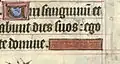 Viri sanguinum et
abunt dies suos: ego
te domine.